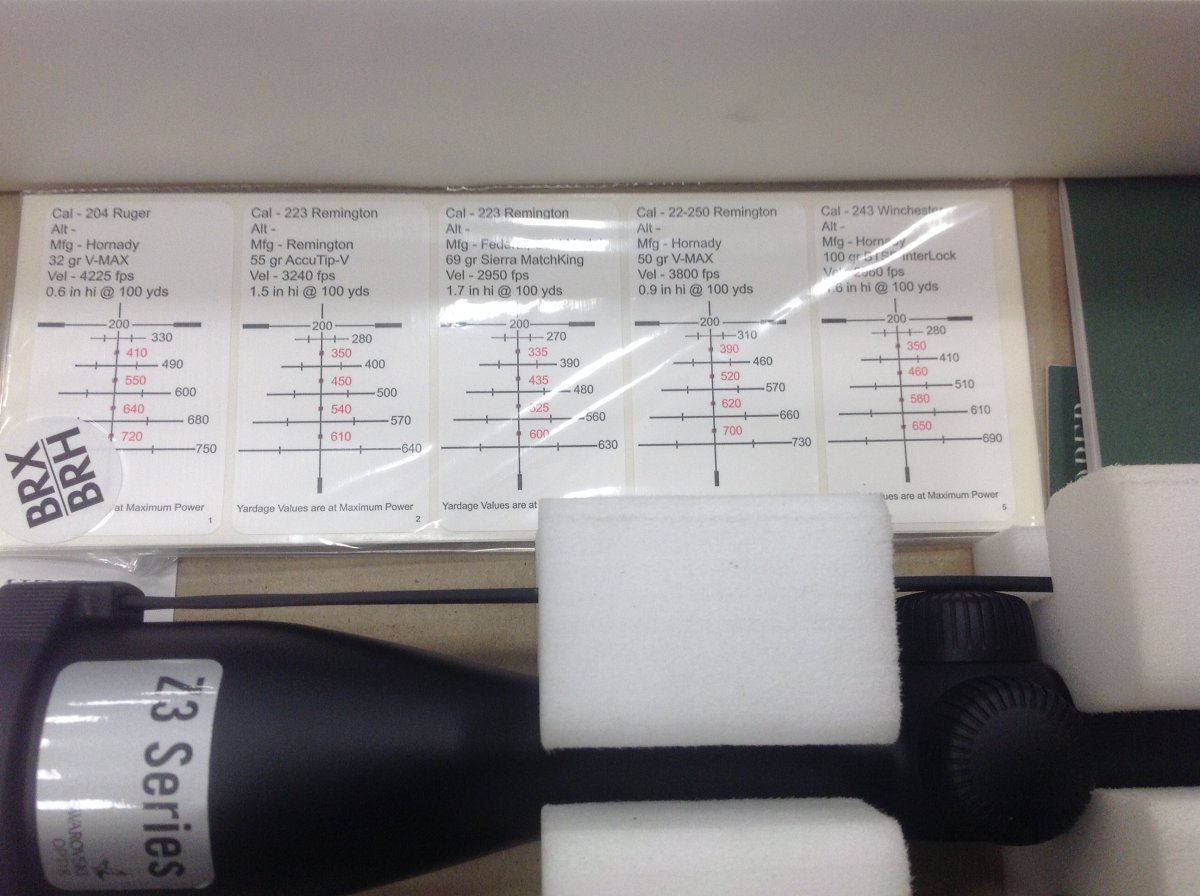 Cal - 204 Ruger
Alt -
Mfg - Hornady
32 gr V-MAX
Vel - 4225 fps
0.6 in hi @ 100 yds
200
330
410
490
550
600
640
680
720
750
at Maximum Power
1
Cal - 223 Remington
Alt -
Mfg - Remington
55 gr AccuTip-V
Vel - 3240 fps
1.5 in hi @ 100 yds
200
280
350
400
450
500
540
570
610
640
Yardage Values are at Maximum Power
2
Cal - 223 Remington
Alt -
Mfg - Federal
69 gr Sierra MatchKing
Vel - 2950 fps
1.7 in hi @ 100 yds
200
270
335
390
435
480
525
560
600
630
Yardage Values are at
Cal - 22-250 Remington
Alt -
Mfg - Hornady
50 gr V-MAX
Vel - 3800 fps
0.9 in hi @ 100 yds
200
310
390
460
520
570
620
660
700
730
Cal - 243 Winchester
Alt -
Mfg - Hornady
100 gr BTSP InterLock
Vel - 2960 fps
1.6 in hi @ 100 yds
200
280
350
410
460
510
560
610
650
690
ues are at Maximum Power
5
BRX
BRH
Z3 Series
SWAROVSKI
OPTIK